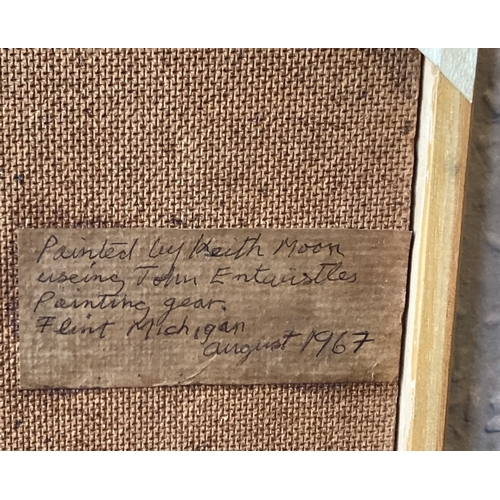 Painted by Keith Moon
useing John Entwistles
Painting gear.
Flint Michigan
august 1967